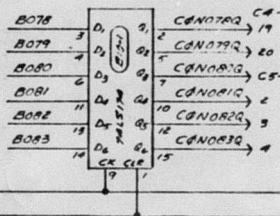 C4-
B078 3 D1 Q1 2 C0N078Q 19
B079 4 D2 Q2 5 C0N079Q 20
B080 6 D3 Q3 7 C0N080Q C5-
B081 11 D4 Q4 10 C0N081Q 2
B082 13 D5 Q5 12 C0N082Q 3
B083 14 D6 Q6 15 C0N083Q 4
74LS174
CK CLR
9 1